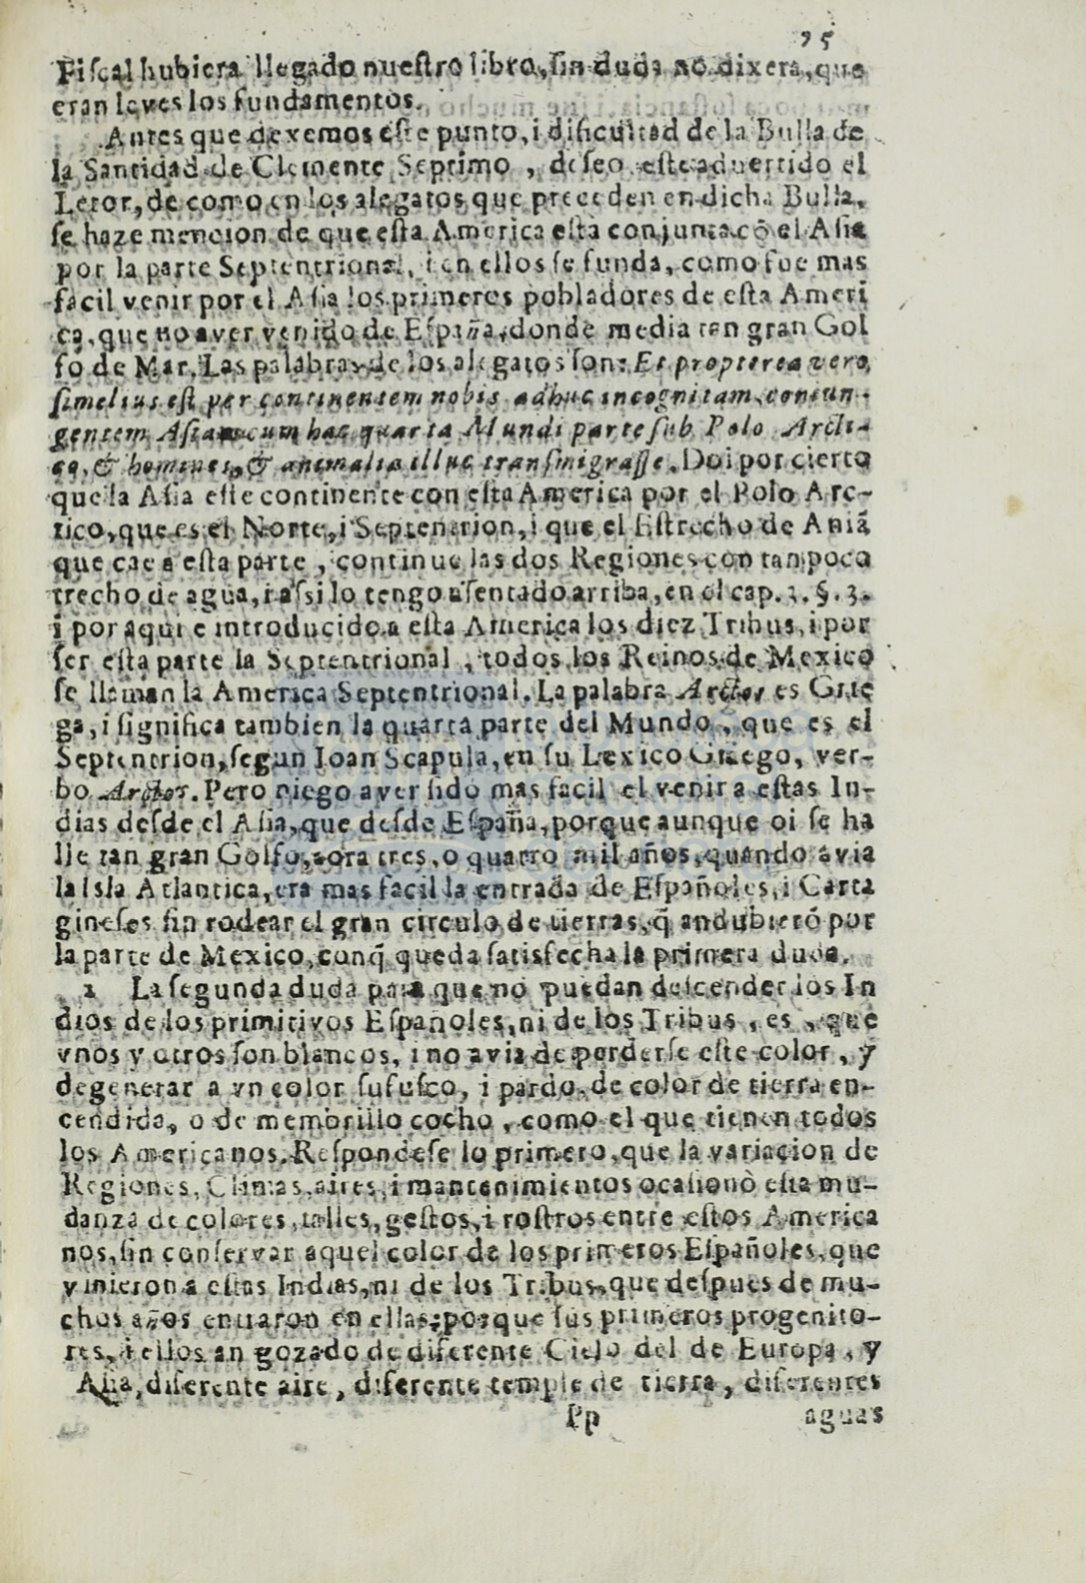 75
Fiscal hubiera llegado nuestro libro, sin duda no dixera, que
eran leves los fundamentos.
Antes que dexemos este punto, i dificultad de la Bulla de
la Santidad de Clemente Septimo , deseo este aduertido el
Letor, de como en los alegatos que preceden en dicha Bulla,
se haze mencion de que esta America esta conjunta cõ el Asia
por la parte Septentrional, i en ellos se funda, como fue mas
facil venir por el Asia los primeros pobladores de esta Ameri
ca, que no aver venido de España, donde media tan gran Gol
fo de Mar. Las palabras de los alegatos son: Et propterea vero,
simelius est per continentem nobis adhuc incognitam, coniun-
gentem Asiam cum hac quarta Mundi parte sub Polo Arcti-
co, & homines, & animalia illuc transmigrasse. Doi por cierto
que la Asia este continente con esta America por el Polo Arc-
tico, que es el Norte, i Septentrion, i que el Estrecho de Aniã
que cae a esta parte , continue las dos Regiones con tan poco
trecho de agua, i assi lo tengo asentado arriba, en el cap. 3. §. 3.
i por aqui e introducido a esta America los diez Tribus, i por
ser esta parte la Septentrional , todos los Reinos de Mexico
se llaman la America Septentrional. La palabra Arctos es Grie
ga, i significa tambien la quarta parte del Mundo , que es el
Septentrion, segun Ioan Scapula, en su Lexico Griego, ver-
bo Arctos. Pero niego aver sido mas facil el venir a estas In-
dias desde el Asia, que desde España, porque aunque oi se ha
lle tan gran Golfo, aora tres, o quatro mil años, quando avia
la Isla Atlantica, era mas facil la entrada de Españoles, i Carta
gineses sin rodear el gran circulo de tierras, q̃ andubierõ por
la parte de Mexico, conq̃ queda satisfecha la primera duda.
2 La segunda duda para que no puedan descender los In
dios de los primitivos Españoles, ni de los Tribus , es , que
vnos y otros son blancos, i no avia de perderse este color, y
degenerar a vn color sufusco, i pardo, de color de tierra en-
cendida, o de membrillo cocho , como el que tienen todos
los Americanos. Respondese lo primero, que la variacion de
Regiones, Climas, aires, i mantenimientos ocasionò esta mu-
danza de colores, talles, gestos, i rostros entre estos America
nos, sin conservar aquel color de los primeros Españoles, que
vinieron a estas Indias, ni de los Tribus, que despues de mu-
chos años entraron en ellas; porque sus primeros progenito-
res, i ellos an gozado de diferente Cielo del de Europa, y
Asia, diferente aire, diferente temple de tierra, diferentes
Pp aguas